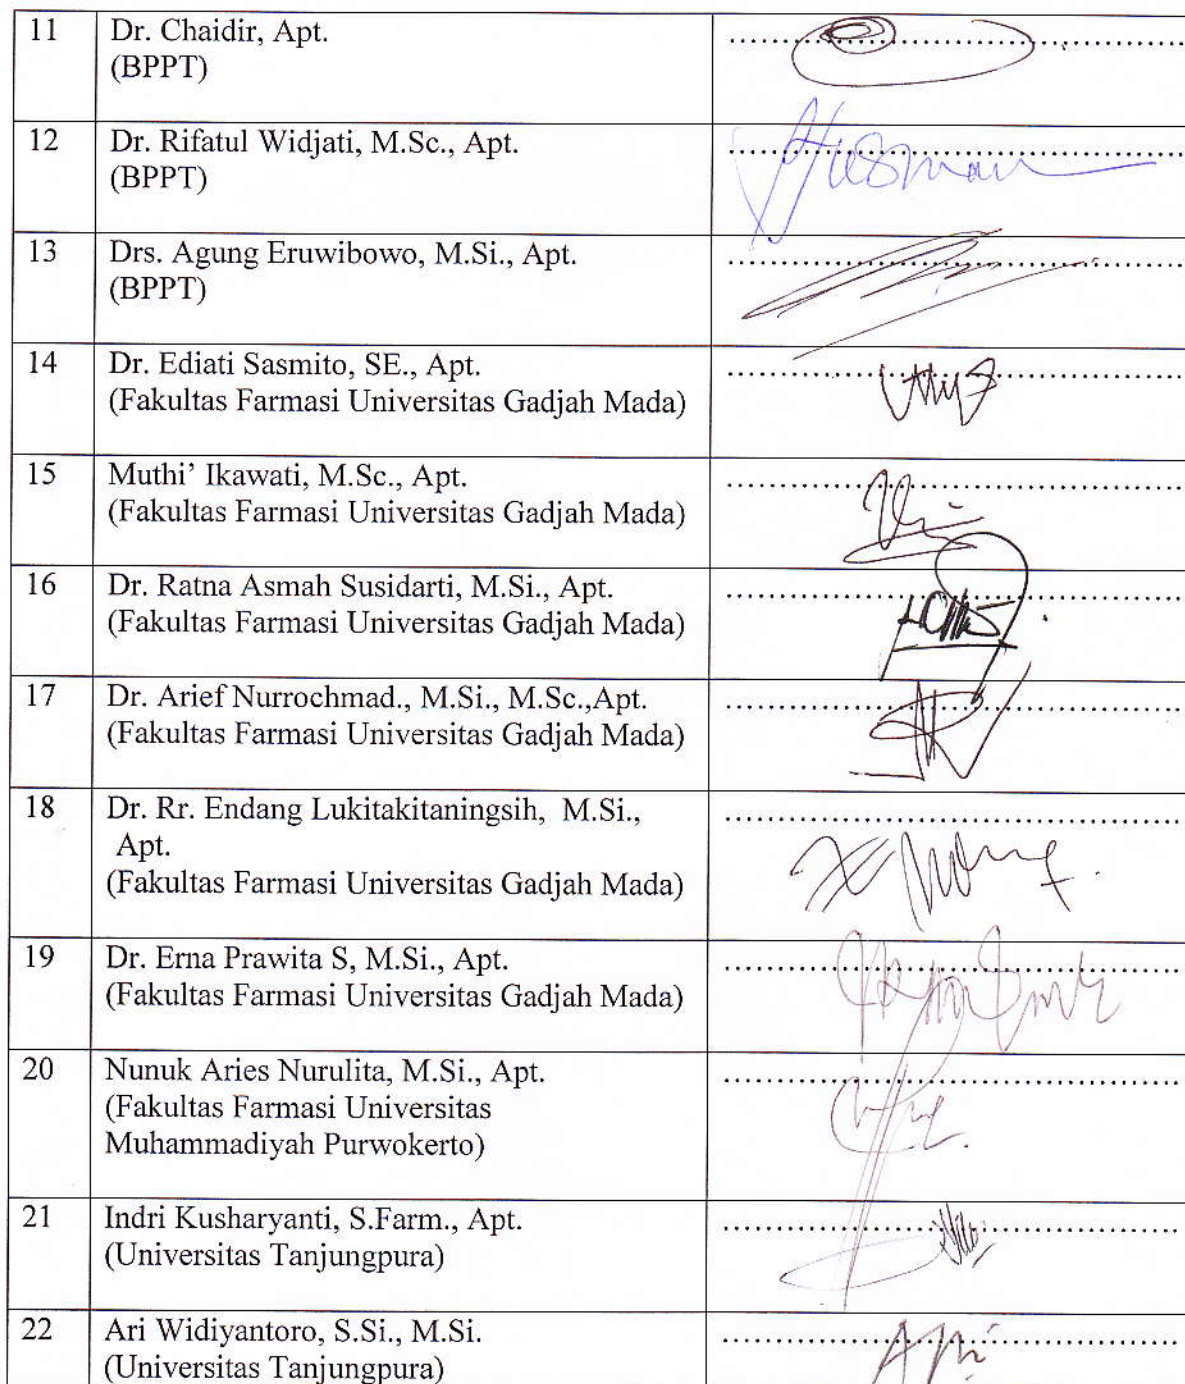 11 Dr. Chaidir, Apt.
(BPPT)
12 Dr. Rifatul Widjati, M.Sc., Apt.
(BPPT)
13 Drs. Agung Eruwibowo, M.Si., Apt.
(BPPT)
14 Dr. Ediati Sasmito, SE., Apt.
(Fakultas Farmasi Universitas Gadjah Mada)
15 Muthi’ Ikawati, M.Sc., Apt.
(Fakultas Farmasi Universitas Gadjah Mada)
16 Dr. Ratna Asmah Susidarti, M.Si., Apt.
(Fakultas Farmasi Universitas Gadjah Mada)
17 Dr. Arief Nurrochmad., M.Si., M.Sc.,Apt.
(Fakultas Farmasi Universitas Gadjah Mada)
18 Dr. Rr. Endang Lukitakitaningsih, M.Si.,
Apt.
(Fakultas Farmasi Universitas Gadjah Mada)
19 Dr. Erna Prawita S, M.Si., Apt.
(Fakultas Farmasi Universitas Gadjah Mada)
20 Nunuk Aries Nurulita, M.Si., Apt.
(Fakultas Farmasi Universitas
Muhammadiyah Purwokerto)
21 Indri Kusharyanti, S.Farm., Apt.
(Universitas Tanjungpura)
22 Ari Widiyantoro, S.Si., M.Si.
(Universitas Tanjungpura)